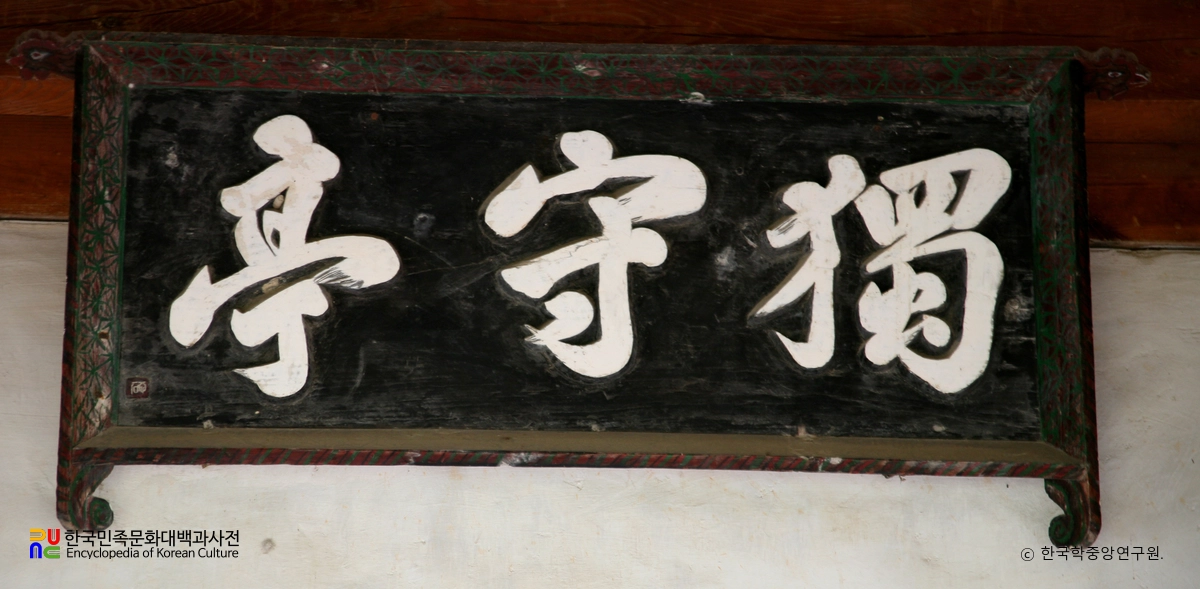 獨守亭
한국민족문화대백과사전
Encyclopedia of Korean Culture
ⓒ 한국학중앙연구원.